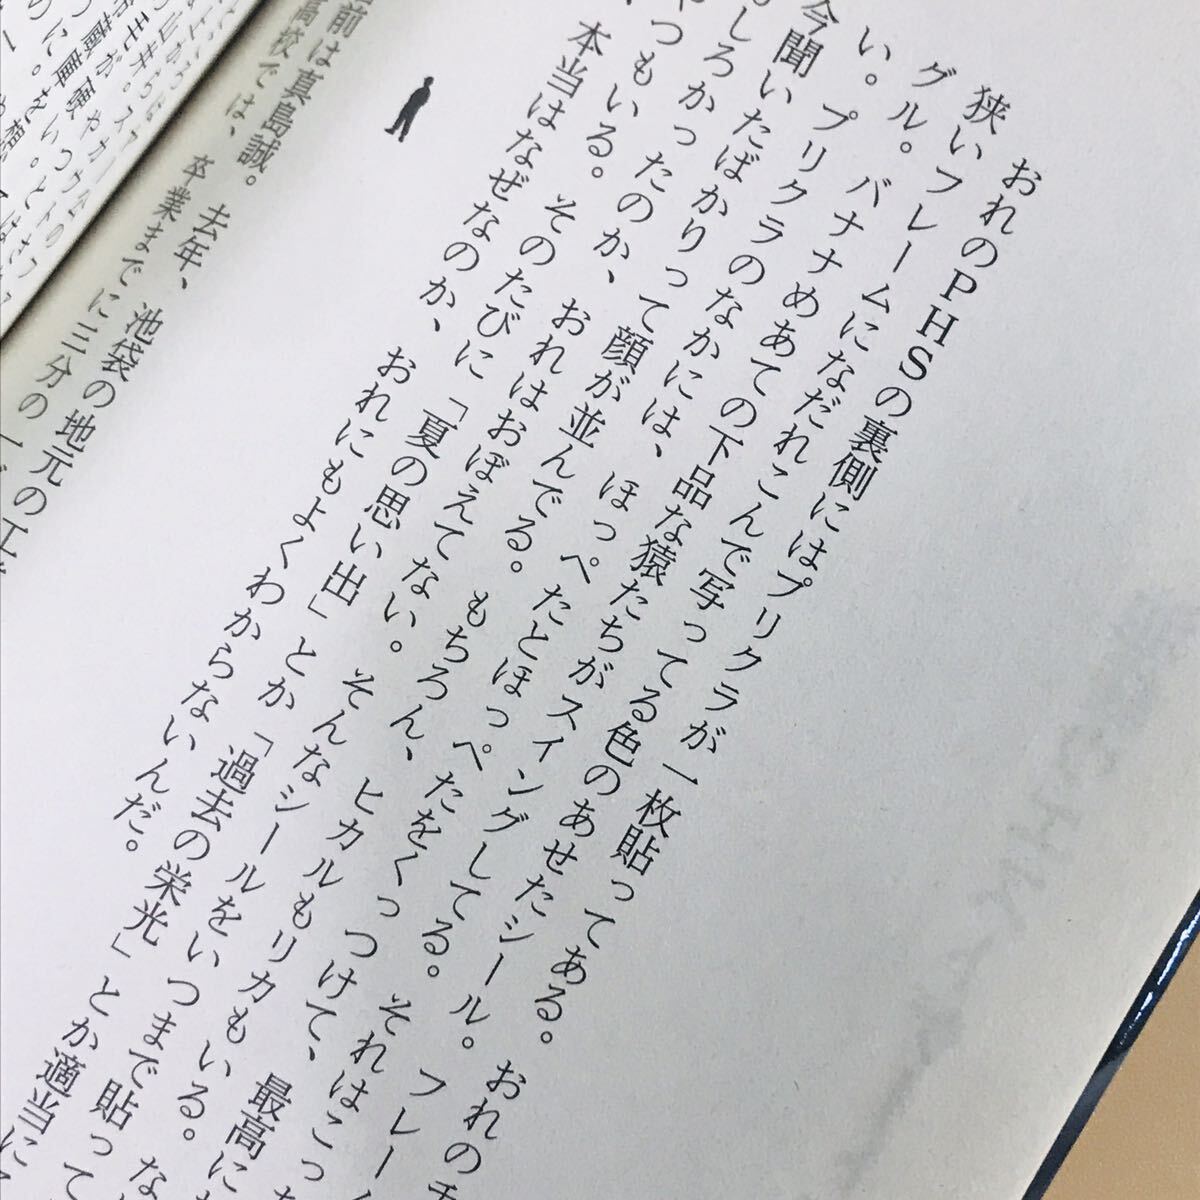 おれのPHSの裏側にはプリクラが一枚貼ってある。おれの
狭いフレームになだれこんで写ってる色のあせたシール。フレー
グル。バナナめあての下品な猿たちがスイングしてる。それはこっ
い。プリクラのなかには、ほっぺたとほっぺたをくっつけて、最高に
今聞いたばかりって顔が並んでる。もちろん、ヒカルもリカもいる。な
しろかったのか、おれはおぼえてない。そんなシールをいつまで貼って
やつもいる。そのたびに「夏の思い出」とか「過去の栄光」とか適当に
本当はなぜなのか、おれにもよくわからないんだ。
前は真島誠。去年、池袋の地元の工
高校では、卒業までに三分の一